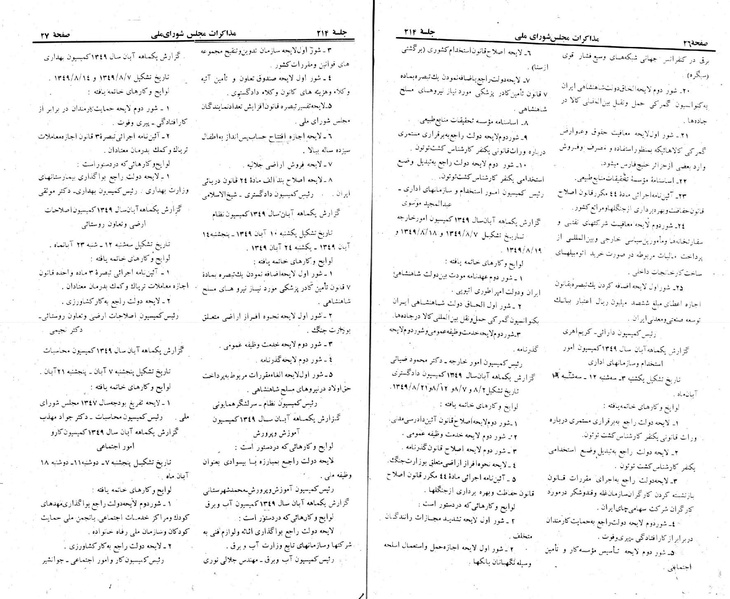 صفحهٔ ۲۶
مذاکرات مجلس شورای ملی
جلسهٔ ۲۱۲
برق در کنفرانس جهانی شبکه‌های وسیع فشار قوی
(سیگره)
۲۰ـ شور دوم لایحه الحاق دولت شاهنشاهی ایران
به کنوانسیون گمرکی حمل و نقل بین‌المللی کالا در
جاده‌ها.
۲۱ـ شور اول لایحه معافیت حقوق و عوارض
گمرکی کالاهائیکه بمنظور استفاده و مصرف و فروش
وارد بعضی از جزائر خلیج فارس میشود.
۲۲ـ اساسنامه مؤسسهٔ تحقیقات منابع طبیعی.
۲۳ـ آئین‌نامه اجرائی مادهٔ ۴۴ مکرر قانون اصلاح
قانون حفاظت و بهره‌برداری از جنگلها و مراتع کشور.
۲۴ـ شور دوم لایحه معافیت شرکتهای نفتی و
مقارنتخانه‌ها و مأمورین سیاسی خارجی و بین‌المللی از
پرداخت مالیات مربوطه در صورت خرید اتومبیلهای
ساخت کارخانجات داخلی.
۲۵ـ شور اول لایحه اضافه کردن یک تبصره بقانون
اجازه اعطای مبلغ ششصد میلیون ریال اعتبار ببانک
توسعه صنعتی و معدنی ایران.
رئیس کمیسیون دارائی ـ کریم اهری
گزارش یکماهه آبان سال ۱۳۴۹ کمیسیون امور
استخدام و سازمانهای اداری
تاریخ تشکیل یکشنبه ۳ـ سه‌شنبه ۱۲ـ سه‌شنبه ۱۹
آبان ماه.
لوایح و کارهای خاتمه یافته:
۱ـ لایحه دولت راجع به برقراری مستمری درباره
وراث قانونی یکنفر کارشناس کشت توتون.
۲ـ لایحه دولت راجع به تبدیل وضع استخدامی
یکنفر کارشناس کشت توتون.
۳ـ لایحه دولت راجع به اجرای مقررات قانون
بازنشسته کردن کارگران سازمان غله و قند و شکر در مورد
کارگران شرکت سهامی چای ایران.
۴ـ شور دوم لایحه دولت راجع به حمایت کارمندان
در برابر از کار افتادگی ـ پیری و فوت.
۵ـ شور دوم لایحه تأسیس مؤسسه کار و تأمین
اجتماعی.
۶ـ لایحه اصلاح قانون استخدام کشوری (برگشتی
از سنا).
۷ـ لایحه دولت راجع به اضافه نمودن یک تبصره بماده
۷ قانون تأمین کادر پزشکی مورد نیاز نیروهای مسلح
شاهنشاهی.
۸ـ اساسنامه مؤسسه تحقیقات منابع طبیعی.
۹ـ شور دوم لایحه دولت راجع به برقراری مستمری
درباره وراث قانونی یکنفر کارشناس کشت توتون.
۱۰ـ شور دوم لایحه دولت راجع به تبدیل وضع
استخدامی یکنفر کارشناس کشت توتون.
رئیس کمیسیون امور استخدام و سازمانهای اداری ـ
عبدالمجید موسوی
گزارش یکماهه آبان سال ۱۳۴۹ کمیسیون امور خارجه
تاریخ تشکیل ۱۳۴۹/۸/۷ و ۱۳۴۹/۸/۱۸ و
۱۳۴۹/۸/۱۹
لوایح و کارهای خاتمه یافته:
۱ـ شور دوم عهدنامه مودت بین دولت شاهنشاهی
ایران و دولت امپراطوری اتیوپی.
۲ـ شور اول الحاق دولت شاهنشاهی ایران
بکنوانسیون گمرکی حمل و نقل بین‌المللی کالا در جاده‌ها.
۳ـ شور دوم لایحه خدمت وظیفه عمومی و شور دوم لایحه
گذرنامه.
رئیس کمیسیون امور خارجه ـ دکتر محمود ضیائی
گزارش یکماهه آبان سال ۱۳۴۹ کمیسیون دادگستری
تشکیل ۸/۲ و ۸/۷ و ۸/۱۲ و ۱۳۴۹/۸/۲۱
لوایح و کارهای خاتمه یافته:
۱ـ شور دوم لایحه اصلاح قانون آئین دادرسی مدنی.
۲ـ شور دوم لایحه خدمت وظیفه عمومی.
۳ـ شور دوم لایحه اصلاح قانون گذرنامه.
۴ـ لایحه نحوه افراز اراضی متعلق بوزارت جنگ.
۵ـ آئین‌نامه اجرائی مادهٔ ۴۴ مکرر قانون اصلاح
قانون حفاظت و بهره برداری از جنگلها.
لوایح و کارهائی که در دستور است:
۱ـ شور اول لایحه تشدید مجازات رانندگان
متخلف.
۲ـ شور اول لایحه اجازه حمل و استعمال اسلحه
وسیله نگهبانان بانکها.
جلسهٔ ۲۱۲
مذاکرات مجلس شورای ملی
صفحهٔ ۲۷
۳ـ شور اول لایحه سازمان تدوین و تنقیح مجموعه
های قوانین و مقررات کشور.
۴ـ شور اول لایحه صندوق تعاون و تأمین آتیه
وکلاء و هزینه های کانون وکلاء دادگستری.
۵ـ لایحه تفسیر تبصره قانون افزایش تعداد نمایندگان
مجلس شورای ملی.
۶ـ لایحه اجازه افتتاح حساب پس‌انداز به اطفال
سیزده ساله ببالا.
۷ـ لایحه فروش اراضی جلالیه.
۸ـ لایحه اصلاح بند الف مادهٔ ۲۴ قانون دریائی
ایران. رئیس کمیسیون دادگستری ـ شیخ‌الاسلامی
گزارش یکماهه آبان سال ۱۳۴۹ کمیسیون نظام
تاریخ تشکیل یکشنبه ۱۰ آبان ۱۳۴۹ ـ پنجشنبه ۱۴
آبان ۱۳۴۹ ـ یکشنبه ۲۴ آبان ۱۳۴۹.
لوایح و کارهای خاتمه یافته:
۱ـ شور اول لایحه اضافه نمودن یک تبصره بماده
۷ قانون تأمین کادر پزشکی مورد نیاز نیرو های مسلح
شاهنشاهی.
۲ـ شور اول لایحه نحوه افراز اراضی متعلق
بوزارت جنگ.
۳ـ شور دوم لایحه خدمت وظیفه عمومی.
۴ـ شور دوم لایحه گذرنامه.
۵ـ شور اول لایحه الغاء مقررات مربوط به پرداخت
حق اولاد در نیروهای مسلح شاهنشاهی.
رئیس کمیسیون نظام ـ سرلشگر همایونی
گزارش یکماهه آبان سال ۱۳۴۹ کمیسیون
آموزش و پرورش
لوایح و کارهائی که در دستور است:
لایحه دولت راجع بمبارزه با بیسوادی بعنوان
وظیفه ملی.
رئیس کمیسیون آموزش و پرورش ـ محمد شهرستانی
گزارش یکماهه آبان سال ۱۳۴۹ کمیسیون آب و برق
لوایح و کارهائی که در دستور است:
لایحه دولت راجع بواگذاری اثاثه و لوازم فنی به
شرکتها و سازمانهای تابع وزارت آب و برق.
رئیس کمیسیون آب و برق ـ مهندس جلالی نوری
گزارش یکماهه آبان سال ۱۳۴۹ کمیسیون بهداری
تاریخ تشکیل ۱۳۴۹/۸/۷ و ۱۳۴۹/۸/۱۴
لوایح و کارهای خاتمه یافته:
۱ـ شور دوم لایحه حمایت کارمندان در برابر از
کارافتادگی ـ پیری و فوت.
۲ـ آئین‌نامه اجرائی تبصرهٔ ۳ قانون اجازه معاملات
تریاک و کمک بدرمان معتادان.
لوایح و کارهائی که در دستور است:
۱ـ لایحه دولت راجع بواگذاری بیمارستانهای
وزارت بهداری. رئیس کمیسیون بهداری ـ دکتر موثقی
گزارش یکماهه آبان سال ۱۳۴۹ کمیسیون اصلاحات
ارضی و تعاون روستائی
تاریخ تشکیل سه‌شنبه ۱۲ ـ شنبه ۲۳ آبانماه.
لوایح و کارهای خاتمه یافته:
۱ـ آئین‌نامه اجرائی تبصرهٔ ۳ ماده واحده قانون
اجازه معاملات تریاک و کمک بدرمان معتادان.
۲ـ لایحه دولت راجع به کارکشاورزی.
رئیس کمیسیون اصلاحات ارضی و تعاون روستائی ـ
دکتر نجیمی
گزارش یکماهه آبان سال ۱۳۴۹ کمیسیون محاسبات
تاریخ تشکیل پنجشنبه ۷ آبان ـ پنجشنبه ۲۱ آبان.
لوایح و کارهای خاتمه یافته:
۱ـ لایحه تفریغ بودجه سال ۱۳۴۷ مجلس شورای
ملی. رئیس کمیسیون محاسبات ـ دکتر جواد مهذب
گزارش یکماهه آبان سال ۱۳۴۹ کمیسیون کار و
امور اجتماعی
تاریخ تشکیل پنجشنبه ۷ـ دوشنبه ۱۱ـ دوشنبه ۱۸
آبان ماه.
لوایح و کارهای خاتمه یافته:
۱ـ شور دوم لایحه دولت راجع بواگذاری مهدهای
کودک و مراکز خدمات اجتماعی بانجمن ملی حمایت
کودکان و سازمان ملی رفاه خانواده.
۲ـ لایحه دولت راجع به کارکشاورزی.
رئیس کمیسیون کار و امور اجتماعی ـ جوانشیر